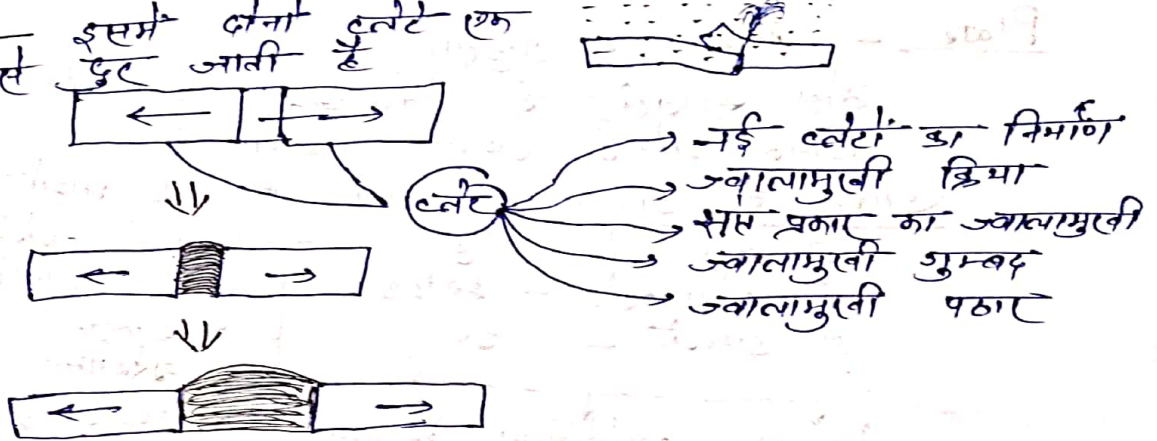 इसमें दोनों प्लेटे एक
से दुर जाती है
प्लेट
नई प्लेटों का निर्माण
ज्वालामुखी क्रिया
प्रकार का ज्वालामुखी
ज्वालामुखी गुम्बद
ज्वालामुखी पठार